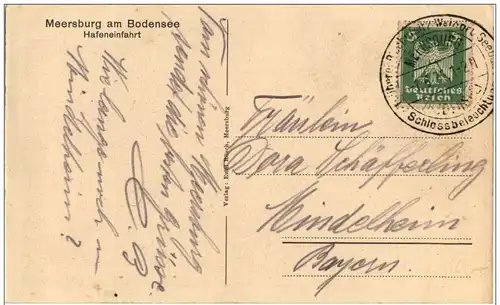 Meersburg am Bodensee
Hafeneinfahrt
Vom schönen Meersburg
sende die besten Grüsse.
Wie lange noch in
Mindelheim?
Verlag: Meersburg
Deutsches
Reich
Schlossbeleucht
Fräulein
Dora Schäfferling
Mindelheim
Bayern.